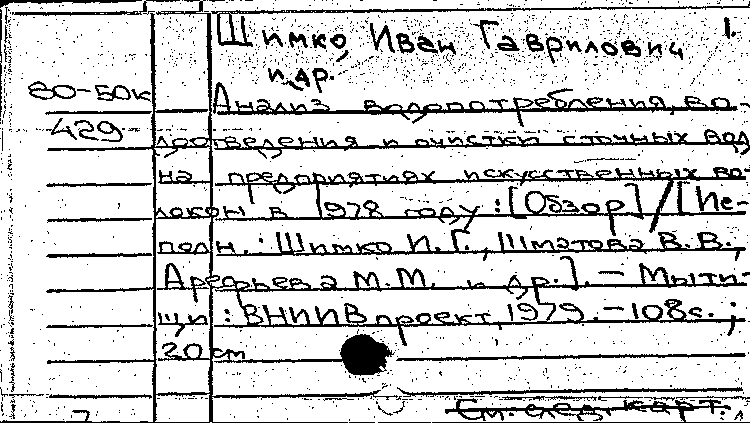 Шимко, Иван Гаврилович 1.
и др.
80-50к Анализ водопотребления, во-
429 доотведения и очистки сточных вод
на предприятиях искусственных во-
локон в 1978 году : [Обзор] / [Ис-
полн.: Шимко И.Г., Шматова В.В.,
Арефьева М.М. и др.]. – Мыти-
щи : ВНИИВпроект, 1979. – 108с. ;
20 см
См. след. карт.